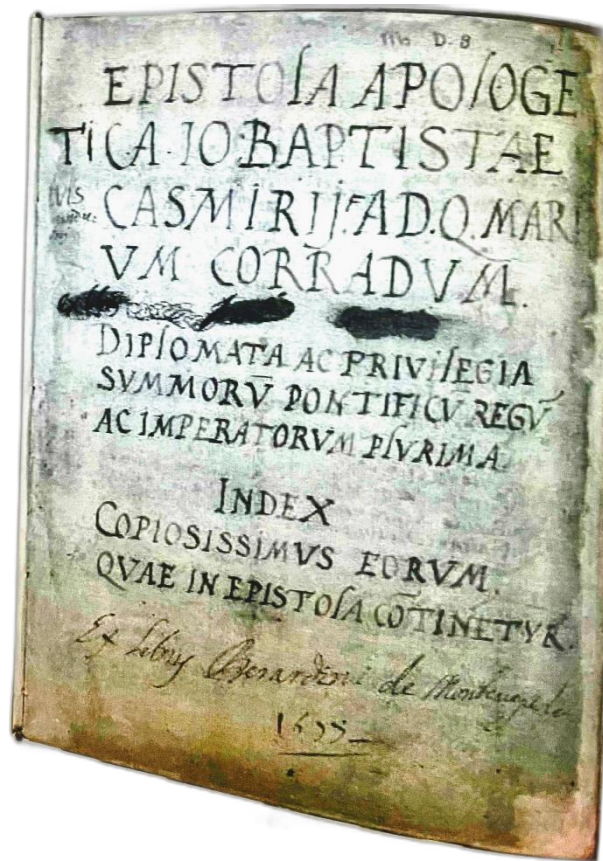 D-8
EPISTOLA APOLOGE
TICA·IO·BAPTISTAE
CASMIRIJ·AD.Q.MARI
VM CORRADVM.
DIPLOMATA AC PRIVILEGIA
SVMMORV̄ PONTIFICV̄ REGV̄
AC IMPERATORVM PLVRIMA
INDEX
COPIOSISSIMVS EORVM.
QVAE IN EPISTOLA CŌTINETVR.
Ex libris Berardini de